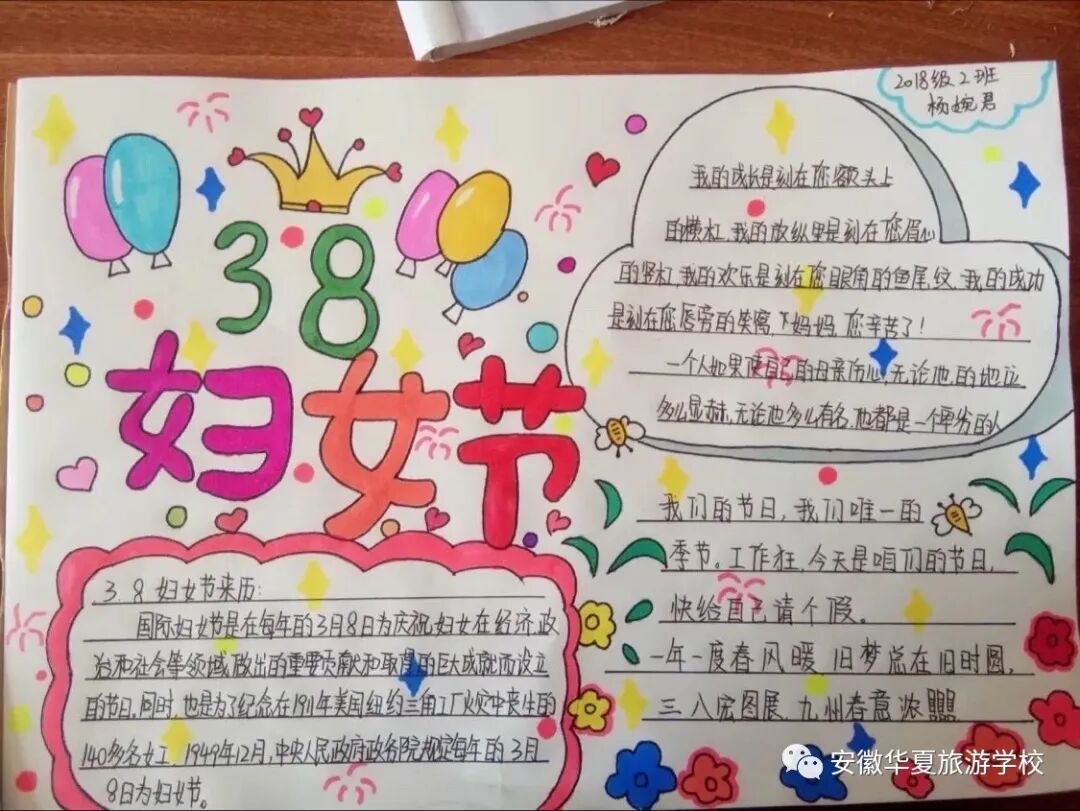 2018级2班
杨婉君
38
妇女节
我的成长是刻在您额头上
的横杠,我的放纵里是刻在您眉心
的竖杠,我的欢乐是刻在您眼角的鱼尾纹,我的成功
是刻在您唇旁的笑窝,妈妈,您辛苦了!
一个人如果使自己的母亲伤心,无论他的地位
多么显赫,无论他多么有名,他都是一个卑劣的人
我们的节日,我们唯一的
季节。工作狂,今天是咱们的节日,
快给自己请个假。
一年一度春风暖,旧梦总在旧时圆,
三八宏图展,九州春意浓!!!!!!
3.8妇女节来历:
国际妇女节是在每年的3月8日为庆祝妇女在经济,政
治和社会等领域,做出的重要贡献和取得的巨大成就而设立
的节日,同时,也是为了纪念在1911年美国纽约三角工厂火灾中丧生的
140多名女工,1949年12月,中央人民政府政务院规定每年的3月
8日为妇女节。
安徽华夏旅游学校